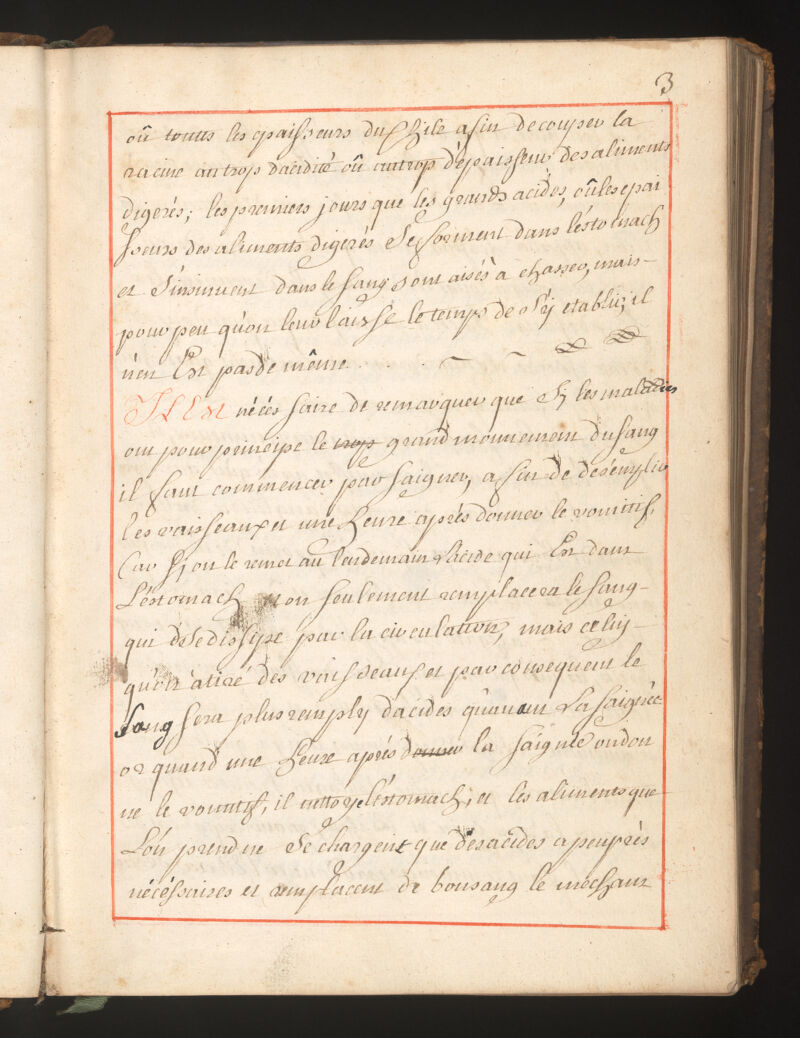 3
oû toutes les epaisseurs du Chile afin de couper la
racine au trop d'acidité oû au trop d'épaisseur des aliments
digerés; les premiers jours que les grands acides, oû les epai
sseurs des aliments digerés se forment dans l'éstomach
et s'insinuent dans le sang sont aisés a chasser, mais-
pour peu qu'on leur laisse le temps de s'ÿ etablir, il
n'en Est pas de même
IL Est nécéssaire de remarquer que si les maladies
ont pour principe le trop grand mouvement du sang
il faut commencer par saigner, afin de desémplir
les vaisseaux et une heure après donner le vomitif,
Car si on le remet au lendemain L'acide qui Est dans
L'éstomach non seulement remplacera le sang-
qui se dissipe par la circulation, mais celuy-
qu'on a tiré des vaisseaux et par consequent le
sang sera plus remply d'acides qu'avant La saignée
or quand une heure après donner la saignée on don
ne le vomitif, il nettoye l'éstomach, et les aliments que
L'on prend ne se chargent que des acides a peu près
nécéssaires et remplacent de bon sang le méchant